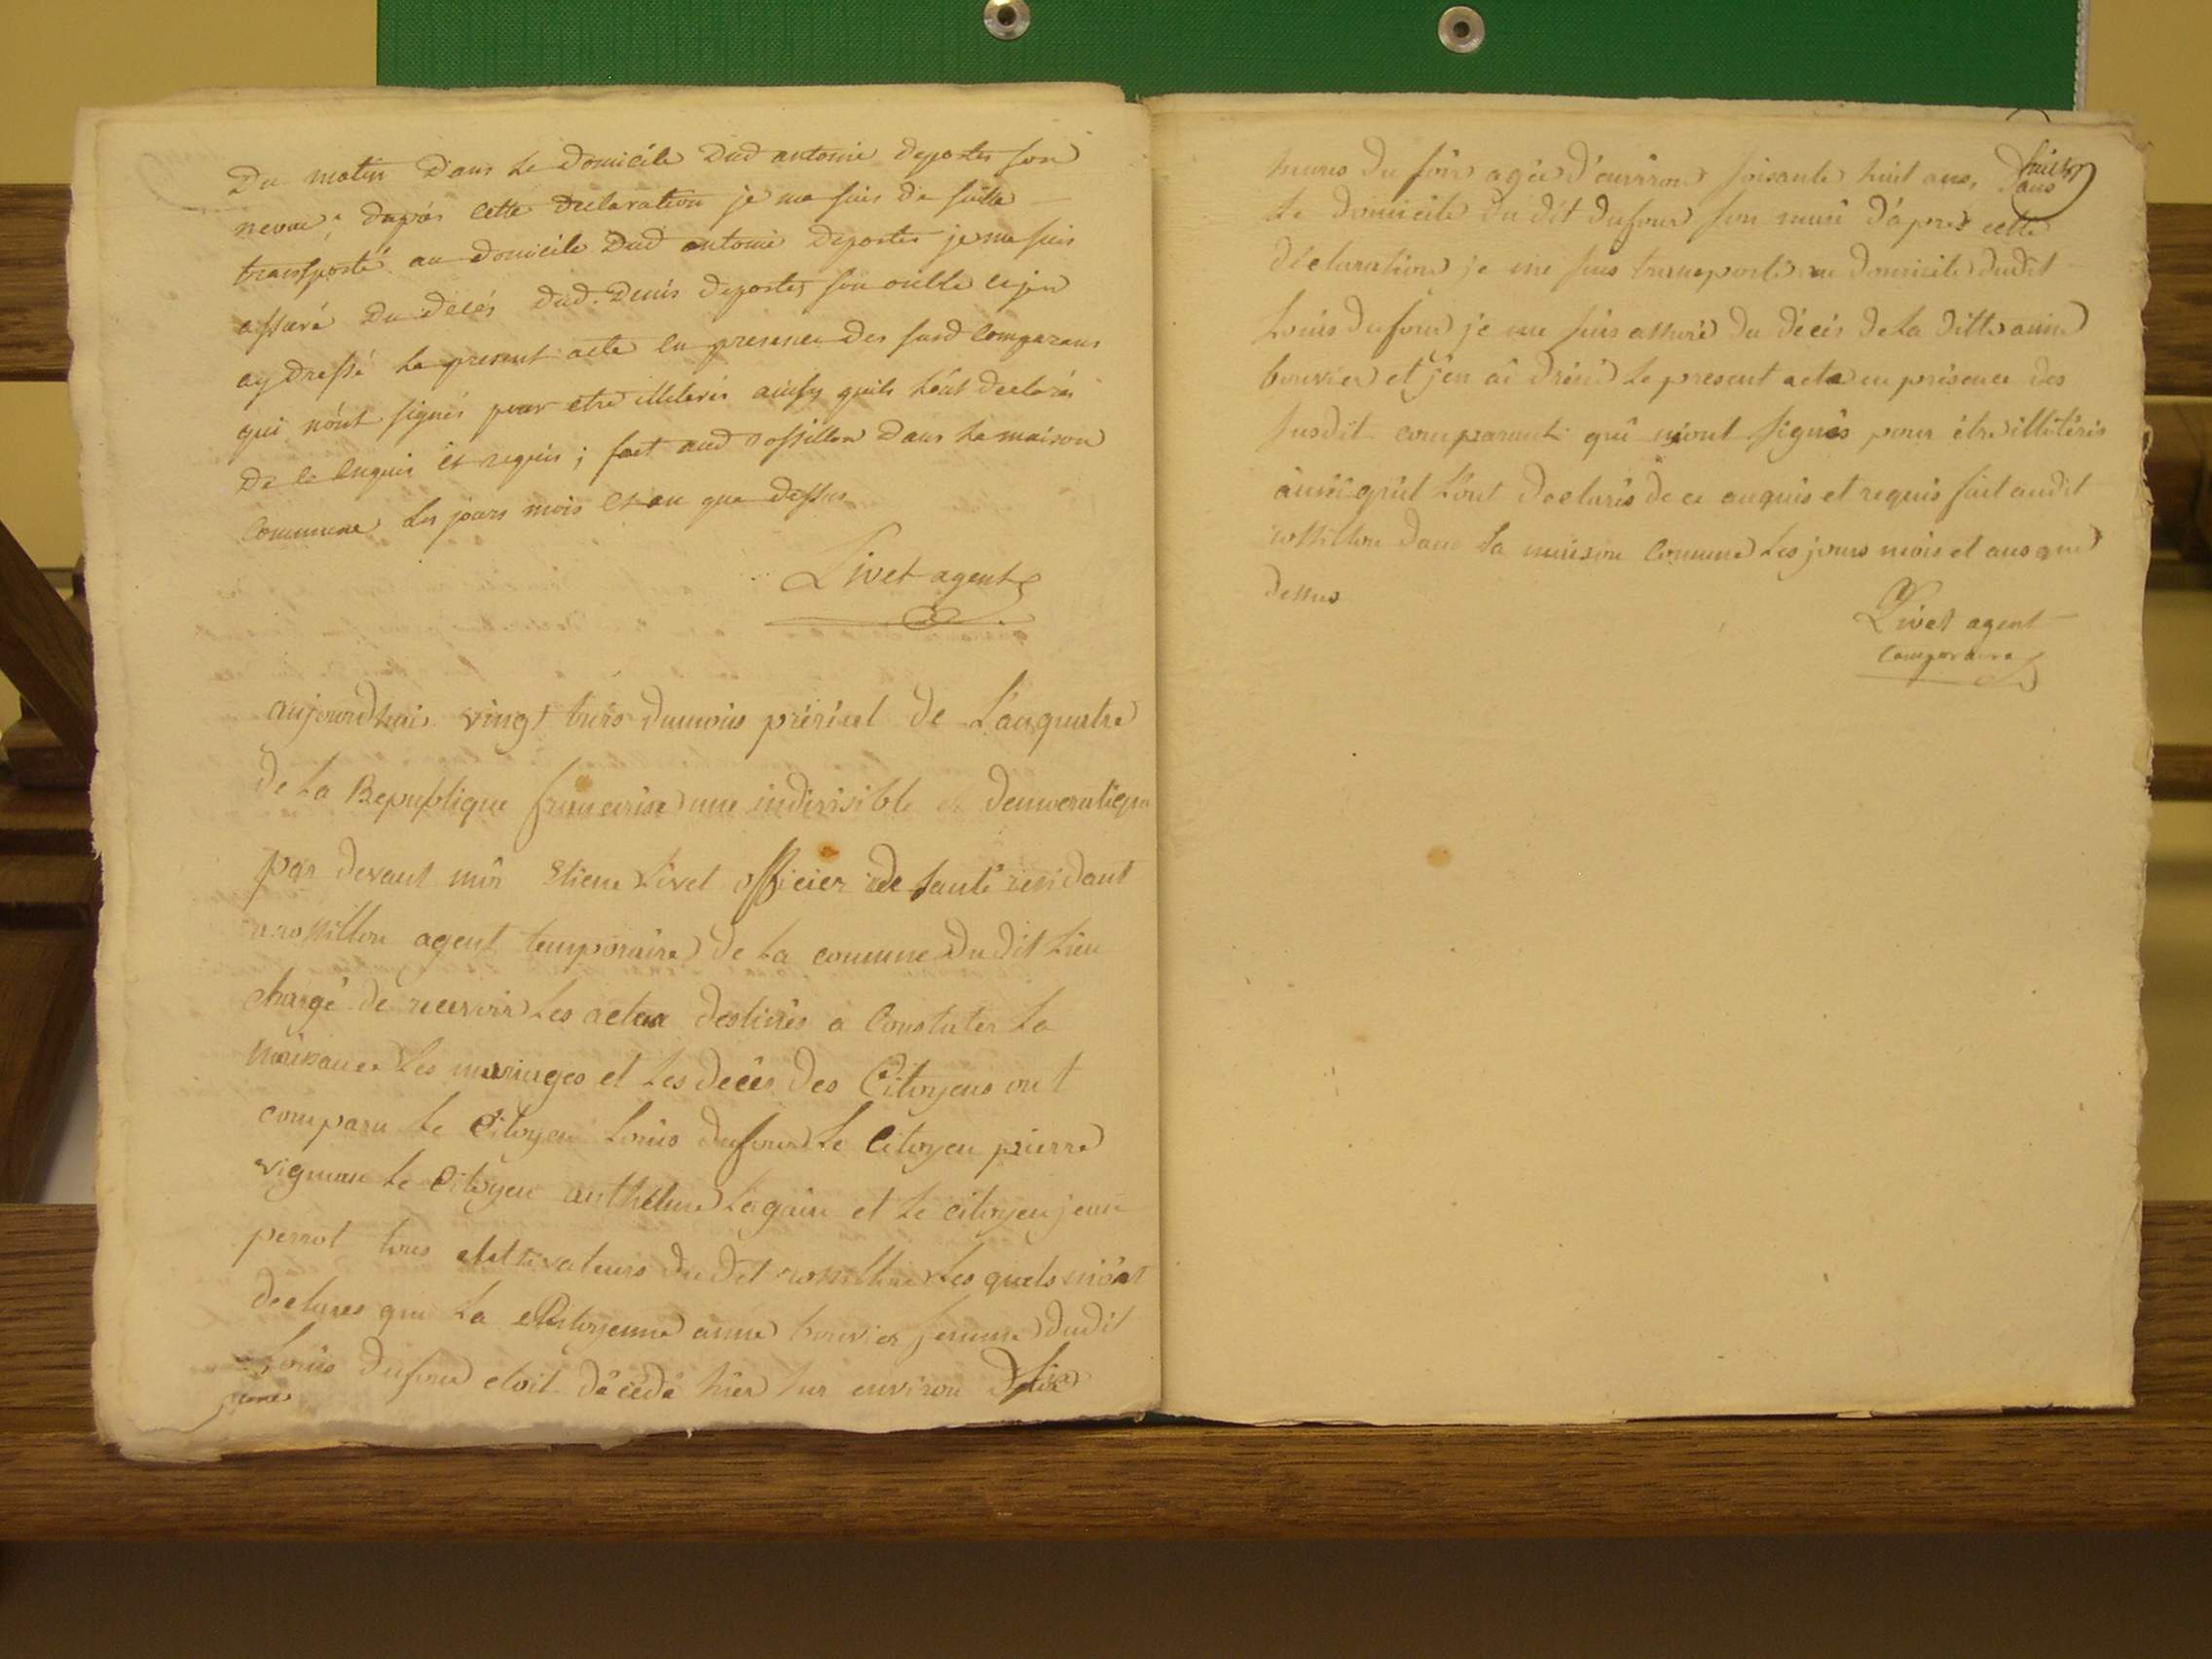 Du matin Dans le Domicile Dud antoine deportes son
neveu; dapres cette Declaration je me suis de suitte
transporté au domicile Dud antoine Deportes je me suis
assuré Du decés dud. Denis deportes son oncle et jen
ay dressé le present acte en presence des susd Comparans
qui nont signés pour etre illeterés ainsy quils leont declarés
De ce enquis et requis; fait aud rossillon Dans la maison
Commune Les jours mois et an que dessus
Livet agent
aujourdhui vingt trois dumois prérial de L'anquatre
de La Republique francaise une indivisible et democratique
par devant moi Etiene Livet officier de santé residant
a rossillon agent temporaire de La comune Dudit Lieu
chargé de recevoir Les actes destinés a Constater La
naissance Les mariages et Les decés des Citoyens ont
comparu Le Citoyen Louis dufour Le Citoyen pierre
Le Citoyen anthelme Legain et Le citoyen jean
perrot tous cultivateurs dudit rossillon Les quels m'ont
declares que La Citoyenne anne bouvier femme dudit
Louis dufour etoit décédé hier sur environ six
heures du soir agée d'environ soisante huit ans, Dans
Le domicile dudit dufour son mari d'après cette
déclaration je me suis transporté au domicile dudit
Louis dufour je me suis assuré du décés de La ditte anne
bouvier et j'en ai dréssé Le present acte en présence des
susdit comparant qui n'ont signés pour étre illitérés
ainsi qu'il L'ont declarés de ce enquis et requis fait audit
rossillon dans La maison Comune Les jours mois et ans que
dessus
Livet agent